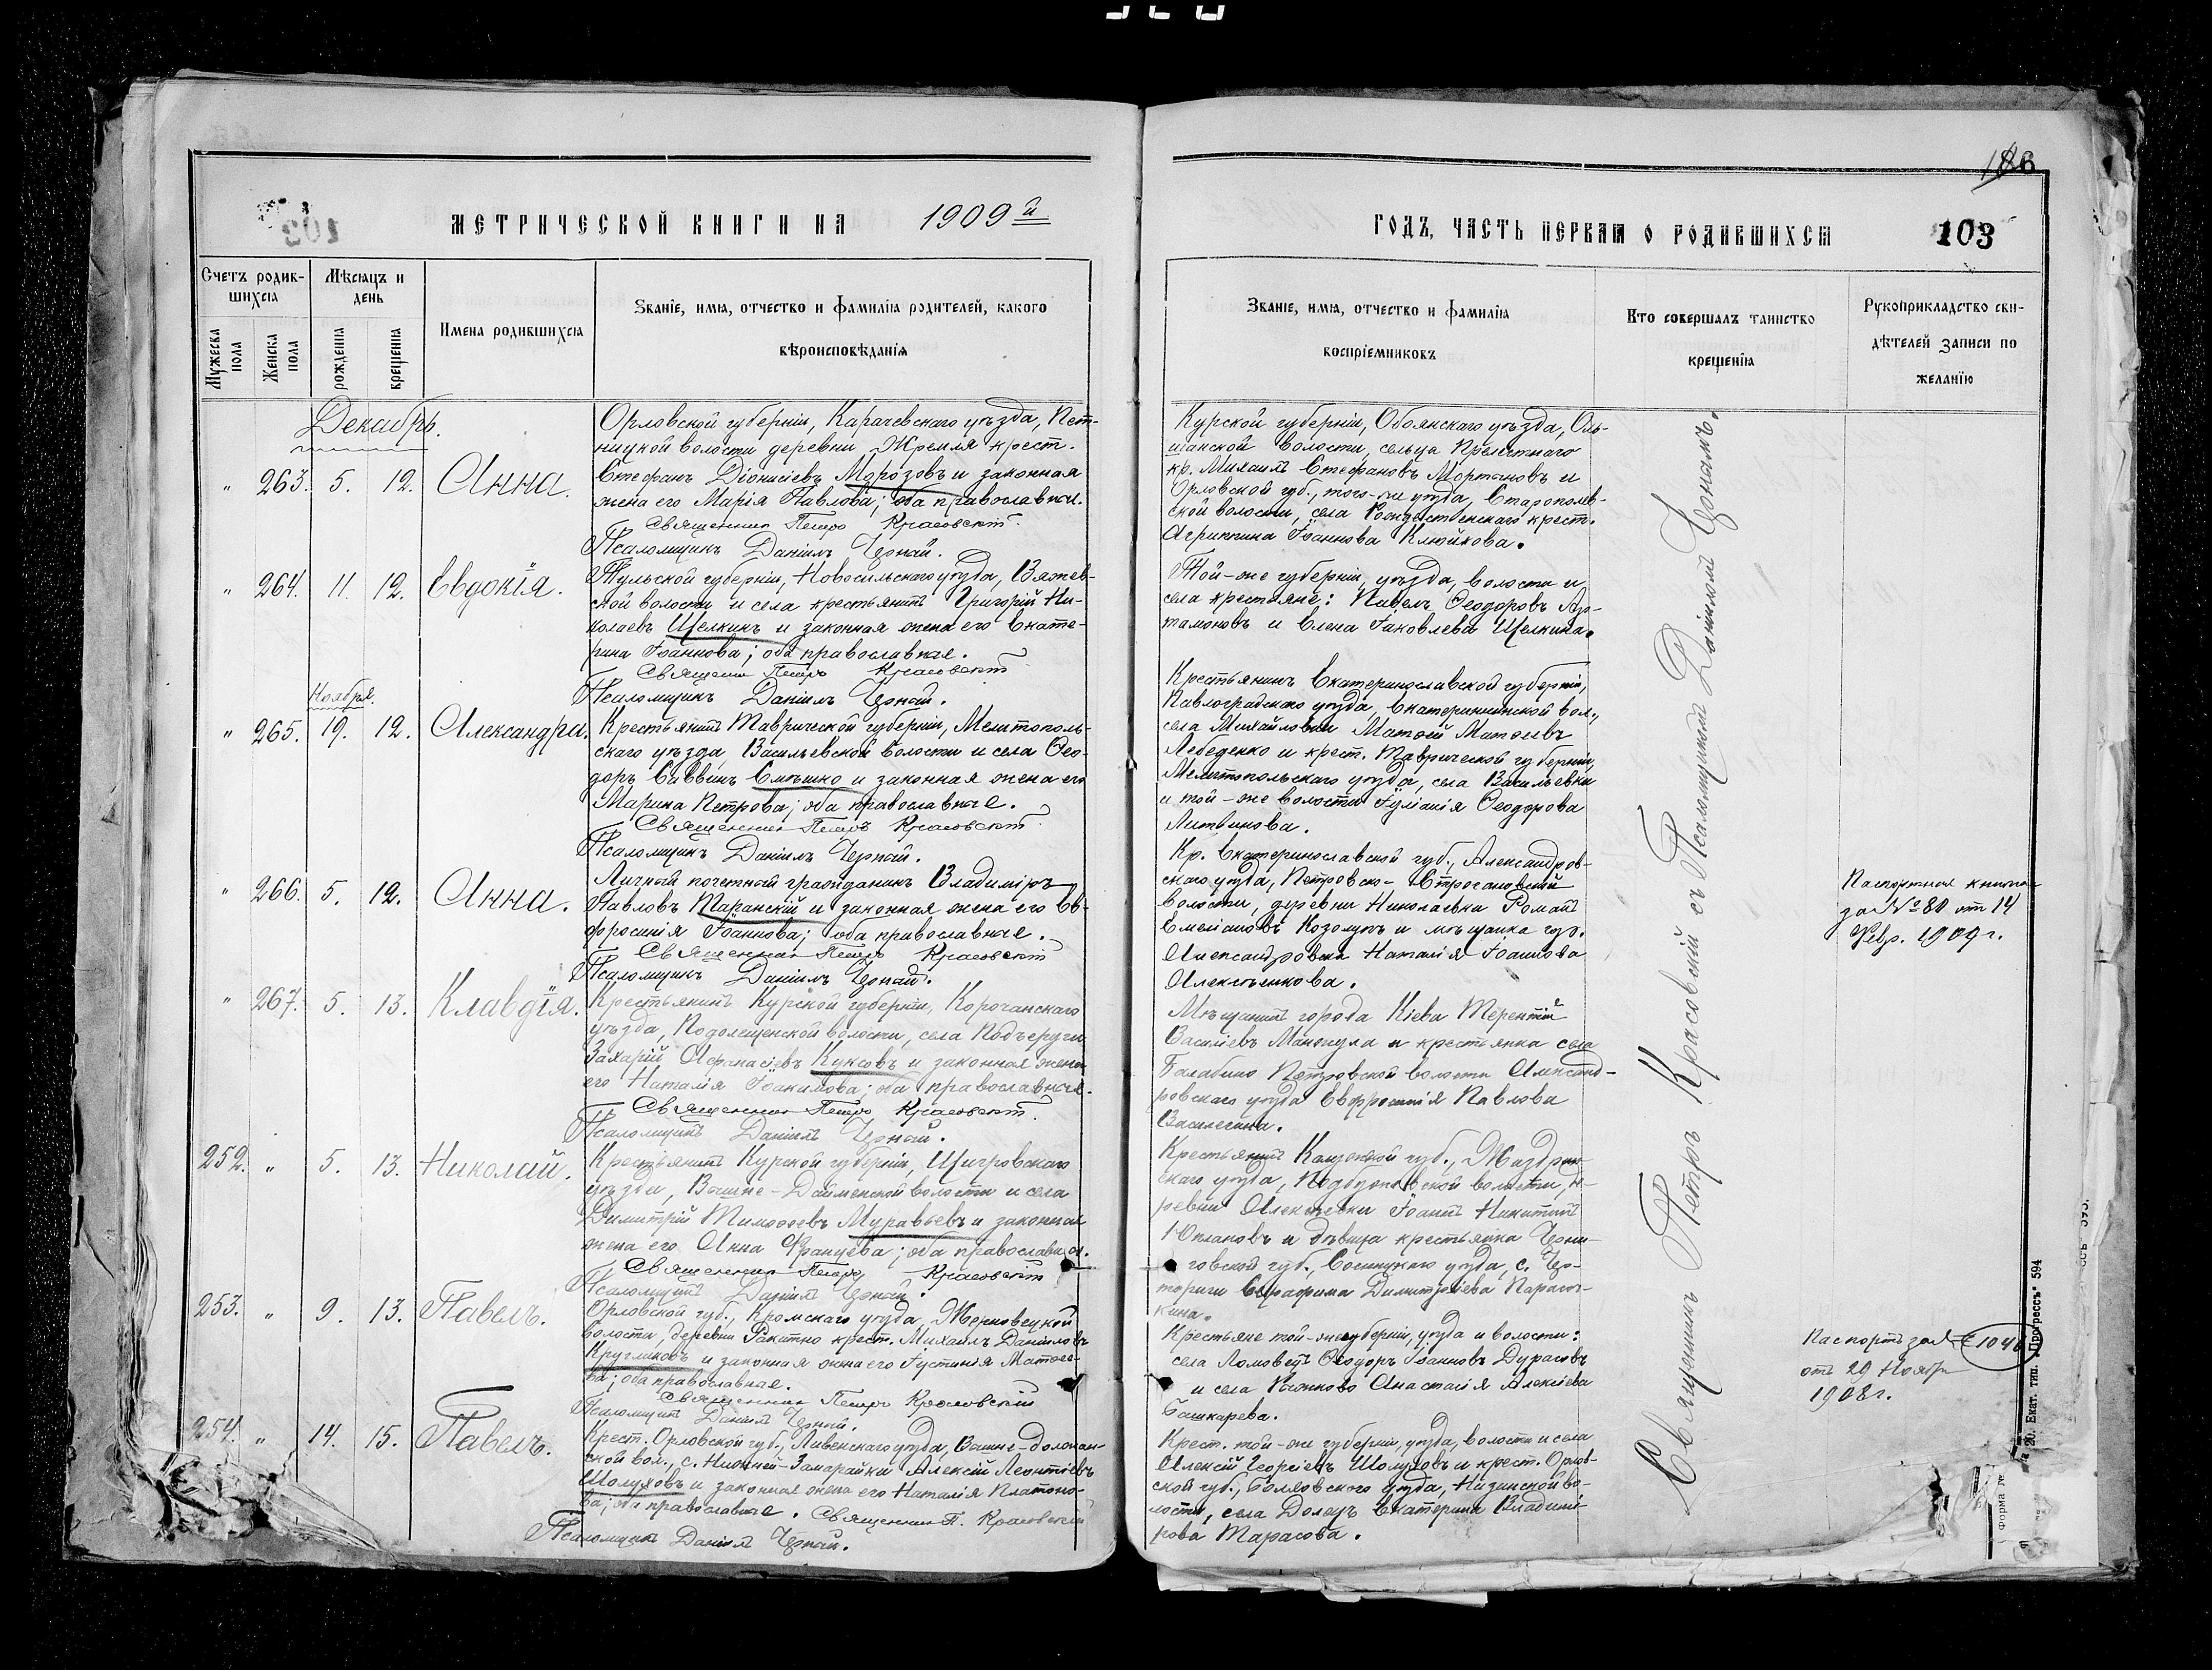 МЕТРИЧЕСКОЙ КНИГИ НА 1909й
Счетъ родившихся
Мѣсяцъ и день
Имена родившихся
Званіе, имя, отчество и фамилія родителей, какого
вѣроисповѣданія
Мужеска пола
Женска пола
рожденія
крещенія
Декабрь.
" 263. 5. 12. Анна.
Орловской губерніи, Карачевскаго уѣзда,
волости деревни Жремля крест.
Стефанъ Діонисіевъ Морозовъ и законная
жена его Марія Павлова; оба православные.
Священникъ Петръ Красовскій
Псаломщикъ Даніилъ Черный.
" 264. 11. 12. Евдокія.
Тульской губерніи, Новосильскаго уѣзда, Вяжев-
ской волости и села крестьянинъ Григорій Ни-
колаевъ Щелкинъ и законная жена его Екате-
рина Іоаннова; оба православные.
Священникъ Петръ Красовскій
Псаломщикъ Даніилъ Черный.
Ноября.
" 265. 19. 12. Александра.
Крестьянинъ Таврической губерніи, Мелитополь-
скаго уѣзда, Васильевской волости и села Ѳео-
доръ Саввинъ Смѣшко и законная жена его
Марина Петрова; оба православные.
Священникъ Петръ Красовскій
Псаломщикъ Даніилъ Черный.
" 266. 5. 12. Анна.
Личный почетный гражданинъ Владиміръ
Павловъ Таранскій и законная жена его Ев-
фросинія Іоаннова; оба православные.
Священникъ Петръ Красовскій
Псаломщикъ Даніилъ Черный.
" 267. 5. 13. Клавдія.
Крестьянинъ Курской губерніи, Корочанскаго
уѣзда, волости, села
Захарій Аѳанасіевъ Куксовъ и законная жена
его Наталія Іоакимова; оба православные.
Священникъ Петръ Красовскій
Псаломщикъ Даніилъ Черный.
252. " 5. 13. Николай.
Крестьянинъ Курской губерніи, Щигровскаго
уѣзда, волости и села
Димитрій Тимоѳеевъ Муравьевъ и законная
жена его Анна Францева; оба православные.
Священникъ Петръ Красовскій
Псаломщикъ Даніилъ Черный.
253. " 9. 13. Павелъ.
Орловской губ., Кромскаго уѣзда, Жерновецкой
волости, деревни Ракитно крест. Михаилъ Даніиловъ
Кругликовъ и законная жена его Іустинія Матѳее-
ва; оба православные.
Священникъ Петръ Красовскій
Псаломщикъ Даніилъ Черный.
254. " 14. 15. Павелъ.
Крест. Орловской губ., Ливенскаго уѣзда,
ской вол., с. Нижней-Замарайки Алексій Леонтіевъ
Шолуховъ и законная жена его Наталія Платоно-
ва; оба православные. Священникъ П. Красовскій
Псаломщикъ Даніилъ Черный.
ГОДЪ, ЧАСТЬ ПЕРВАЯ О РОДИВШИХСЯ 103
Званіе, имя, отчество и фамилія
воспріемниковъ
Кто совершалъ таинство
крещенія
Рукоприкладство сви-
дѣтелей записи по
желанію
Курской губерніи, Обоянскаго уѣзда, Оль-
шанской волости, сельца
кр. Михаилъ Стефановъ Мортановъ и
Орловской губ., того-же уѣзда,
ской волости, села Рождественскаго крест.
Агриппина Іоаннова Клюйкова.
Той-же губерніи, уѣзда, волости и
села крестьяне: Павелъ Ѳеодоровъ Ар-
тамоновъ и Елена Іаковлева Щелкина.
Крестьянинъ Екатеринославской губерніи,
Павлоградскаго уѣзда, Екатерининской вол.,
села Михайловки Матѳей Матѳеевъ
Лебеденко и крест. Таврической губерніи,
Мелитопольскаго уѣзда, села Васильевки
и той-же волости Іуліанія Ѳеодорова
Литвинова.
Кр. Екатеринославской губ., Александров-
скаго уѣзда, Петровско-
волости, деревни Николаевки Романъ
Емеліановъ Козолупъ и мѣщанка гор.
Александровска Наталія Іоаннова
Алексѣенкова.
Паспортная книжка
за № 80 от 14
Февр. 1909 г.
Мѣщанинъ города Кіева Терентій
Василіевъ и крестьянка села
Балабино Петровской волости Александ-
ровскаго уѣзда Евфросинія Павлова
Крестьянинъ Калужской губ., Жиздрин-
скаго уѣзда, волости, де-
ревни Алексѣевки Іоаннъ Никитинъ
Юплановъ и дѣвица крестьянка Черни-
говской губ., Сосницкаго уѣзда, с. Чер-
Серафима Димитріева
Крестьяне той-же губерніи, уѣзда и волости:
села Ломовецъ Ѳеодоръ Іоанновъ Дурасовъ
и села Анастасія Алексіева
Башкарева.
Паспортъ за № 1046
отъ 29 Ноября
1908 г.
Крест. той-же губерніи, уѣзда, волости и села
Алексій Георгіевъ Шолуховъ и крест. Орлов-
ской губ., Болховского уѣзда, во-
лости, села Долецъ Екатерина Владимі-
рова Тарасова.
Священникъ Петръ Красовскій съ Псаломщикомъ Даніиломъ Чернымъ.
20. Екат. тип. „Прогрессъ“ 594
Форма №